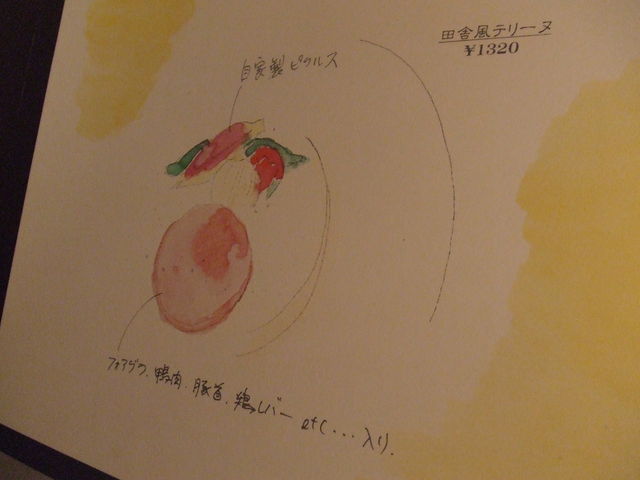 田舎風テリーヌ
¥1320
自家製ピクルス
フォアグラ、鴨肉、豚首、鶏レバー etc・・・入り.